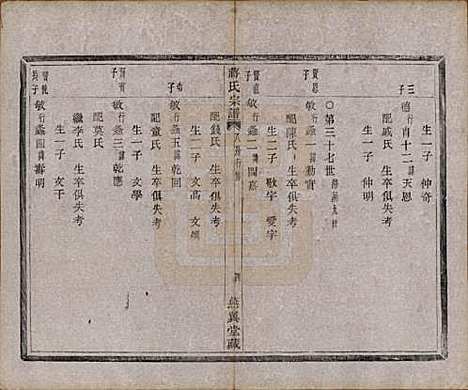 生一子 仲奇
三子 德行 肖十二 諱天恩
配戚氏 生卒俱失考
生一子 仲明
○第三十七世
敏行 蠡一 諱勤實
配陳氏 生卒俱失考
生二子 敬宇 愛宇
敏行 蠡二 諱國嘉
蔣氏宗譜
燕翼堂藏
配錢氏 生卒俱失考
生二子 文高 文煥
敏行 蠡五 諱乾回
配童氏 生卒俱失考
生一子 文學
敏行 蠡三 諱乾應
配莫氏
繼李氏 生卒俱失考
生一子 文干
敏行 蠡四 諱壽明